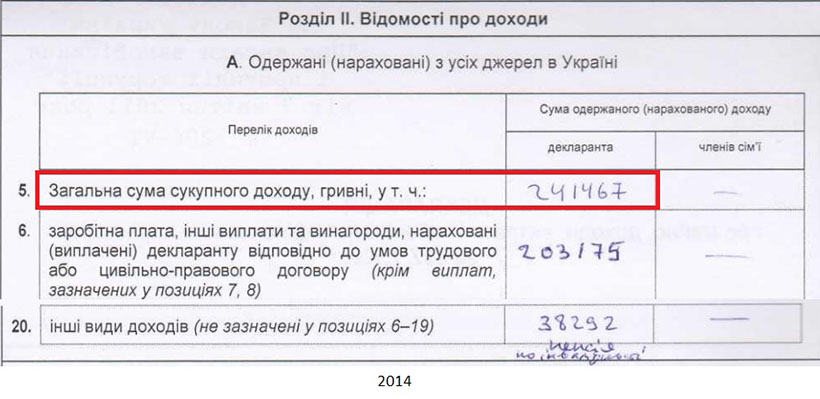 Розділ ІІ. Відомості про доходи
А. Одержані (нараховані) з усіх джерел в Україні
Перелік доходів
Сума одержаного (нарахованого) доходу
декларанта
членів сім’ї
5. Загальна сума сукупного доходу, гривні, у т. ч.: 241467 —
6. заробітна плата, інші виплати та винагороди, нараховані
(виплачені) декларанту відповідно до умов трудового 203175 —
або цивільно-правового договору (крім виплат,
зазначених у позиціях 7, 8)
20. інші види доходів (не зазначені у позиціях 6–19) 38292 —
пенсія
по інвалідності
2014